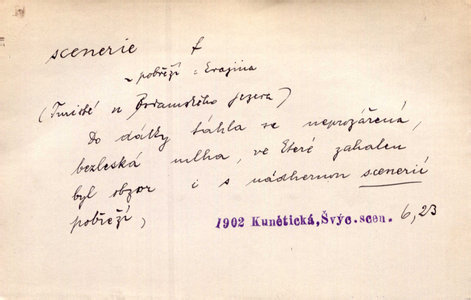 scenerie f
~ pobřeží : krajina
( u Bodamského jezera)
Do dálky táhla se neprozářená,
bezleská mlha, ve které zahalen
byl obzor i s nádhernou scenerií
pobřeží,
1902 Kunětická, Švýc.scen. 6,23